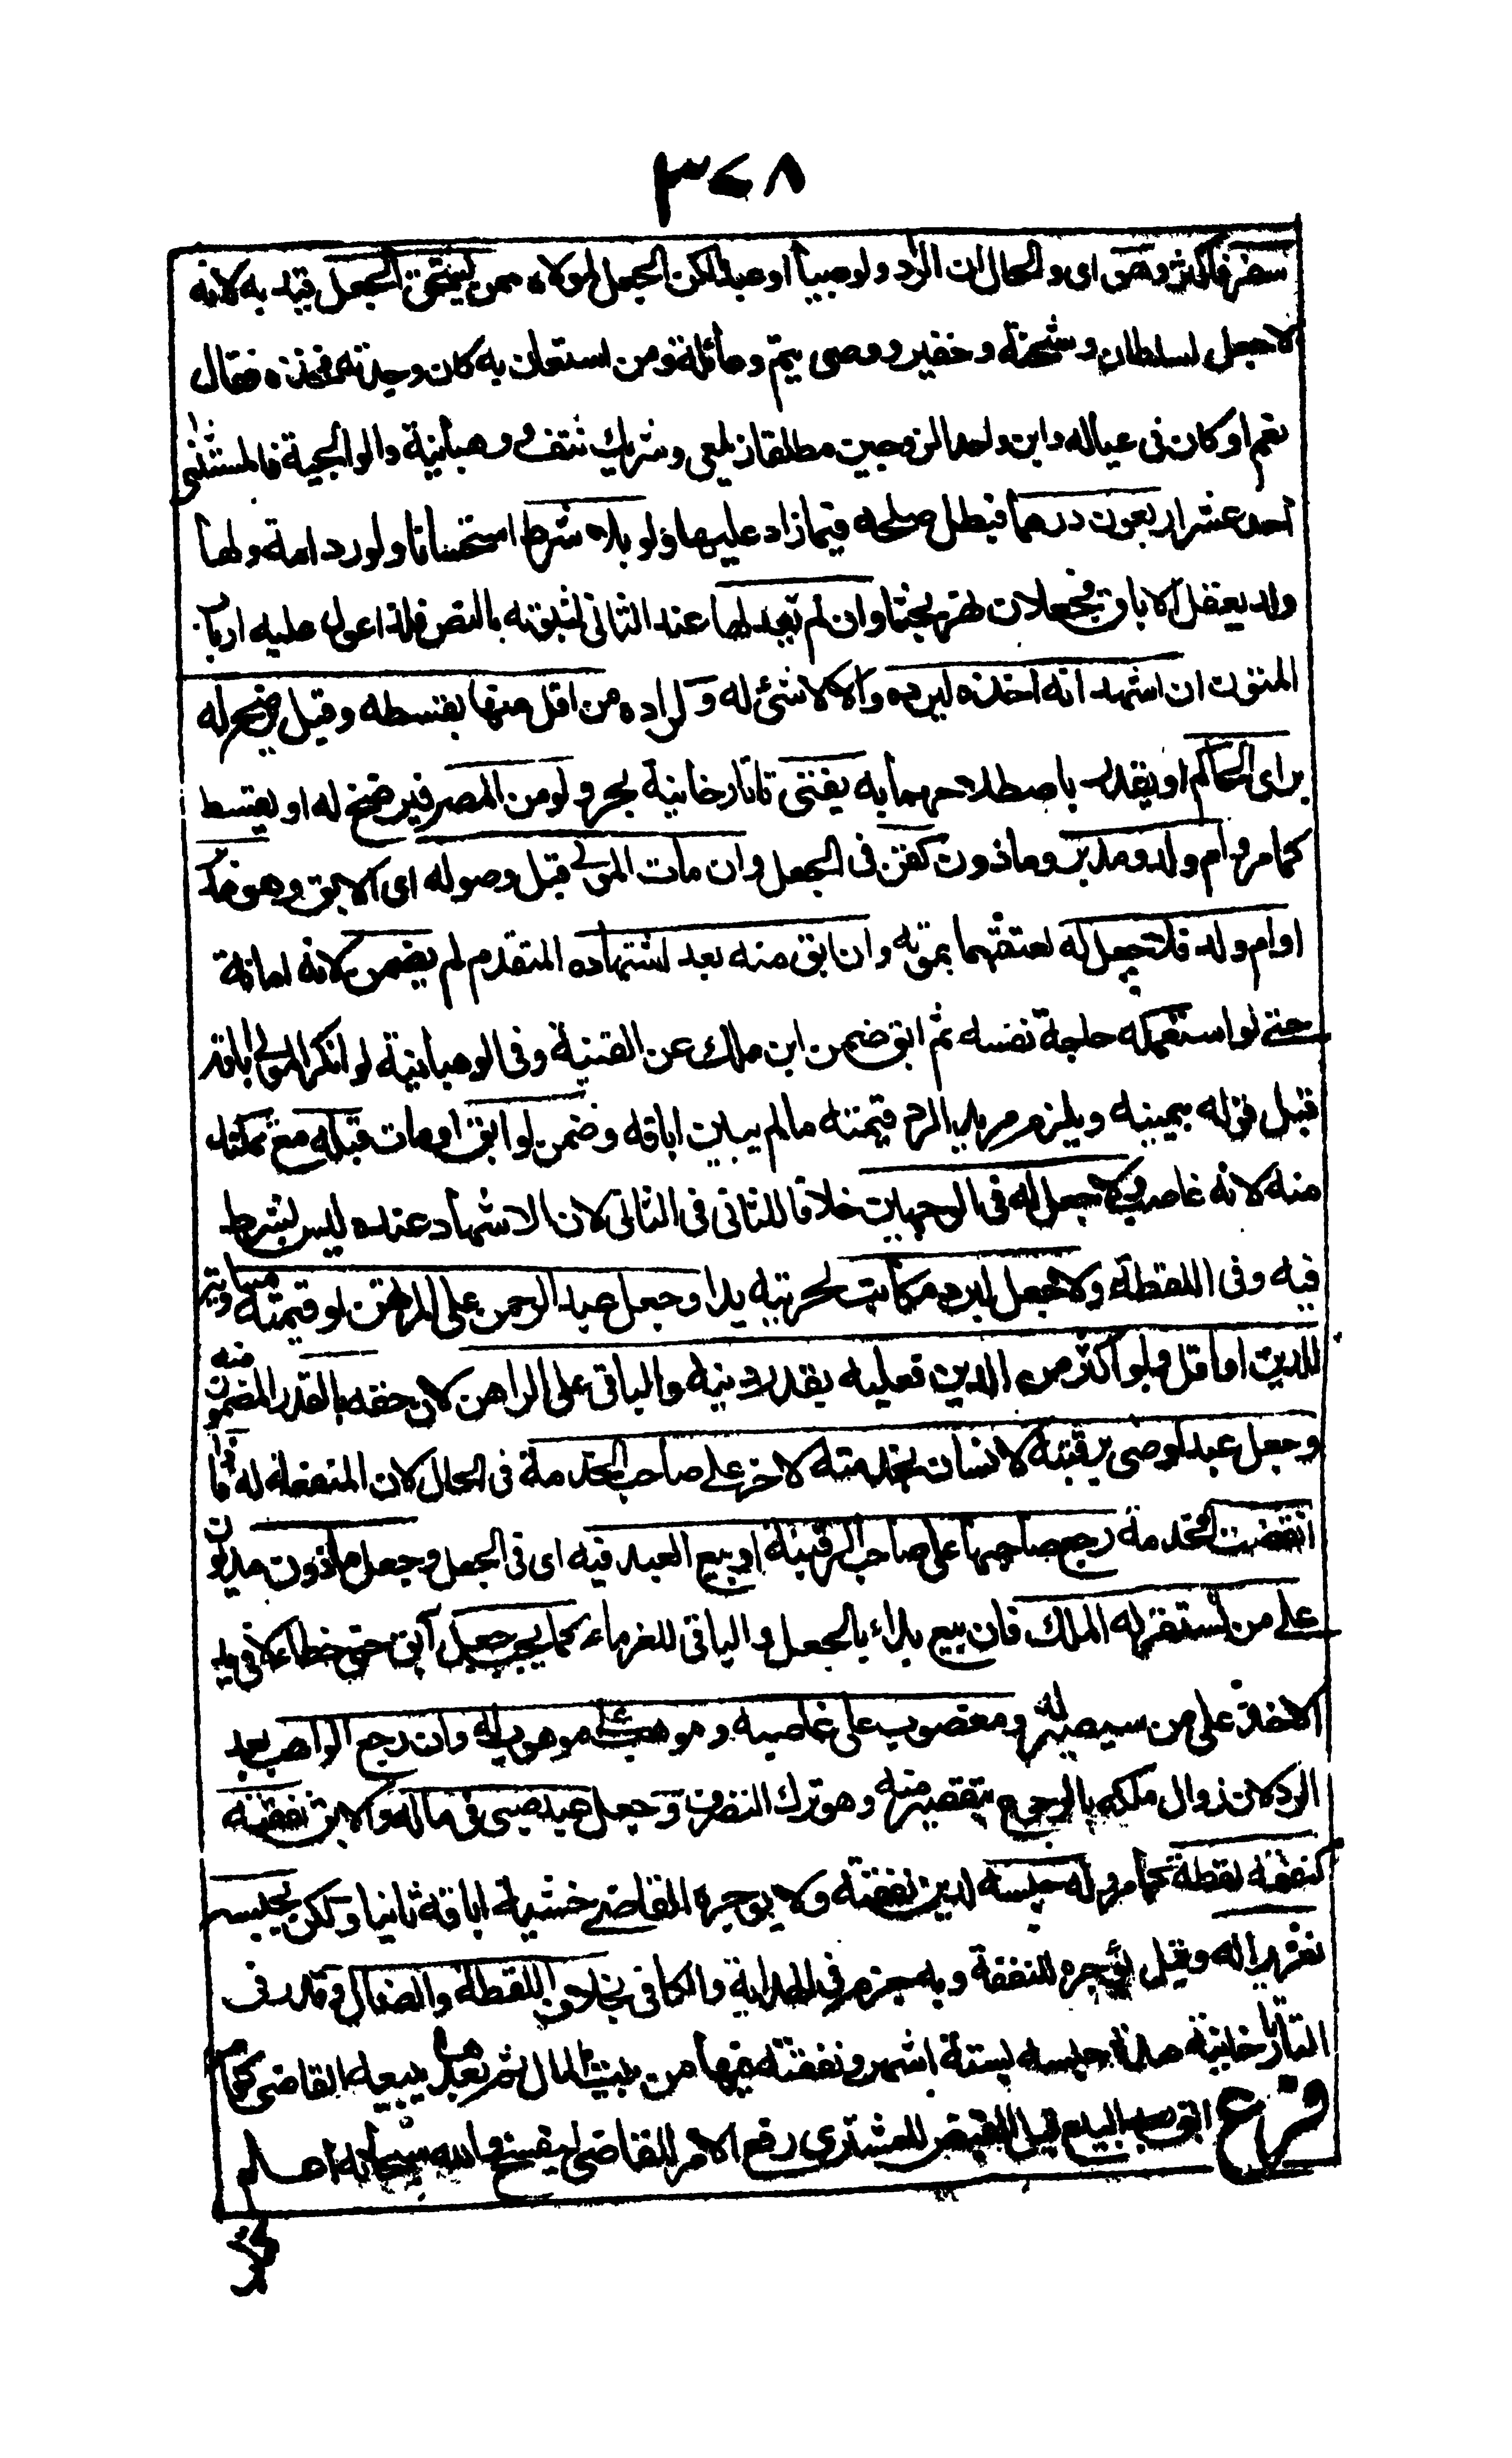 ٣٧٨
سفر فاكثر وهو اى والحال ان الراد ولو صبيا او عبدا لكن الجعل لمولاه ممن يستحق الجعل قيد به لانه
لا جعل لسلطان وشحنة وخفير ووصى يتيم وعائله ومن استعان به كان وجدته فخذه فقال
نعم او كان فى عياله وابن واحد الزوجين مطلقا زيلعى وشريك نتف ووهبانية والولوالجية فالمستثنى
احد عشر اربعون درهما فبطل صلحه فيما زاد عليها ولو بلا شرط استحسانا ولو رد امة ولها
ولد يعقل الاباق فجعلان نهر بحثا وان لم يعد لها عند الثانى لثبوته بالنص فلذا عول عليه ارباب
المتون ان اشهد انه اخذه ليرده والا لا شئ له و لراده من اقل منها بقسطه وقيل يرضخ له
براى الحاكم او يقدر باصطلاحهما به يفتى تاتارخانية بحر ولو من المصر فيرضخ له او يقسط
كما مر وام ولد ومدبر وماذون كقن فى الجعل وان مات المولى قبل وصوله اى الابق وهو مدبر
او ام ولد فلا جعل له لعتقهما بموته وان ابق منه بعد اشهاده المتقدم لم يضمن لانه امانة
حتى لو استعمله حاجة نفسه ثم ابق ضمن ابن ملك عن القنية وفى الوهبانية لو انكر المولى اباقه
قبل قوله بيمينه ويلزم مريد الرد قيمته مالم يبين اباقه وضمن لو ابق او مات قبله مع تمكنه
منه لانه غاصب ولا جعل له فى الوجهين خلافا للثانى فى الثانى لان الاشهاد عنده ليس بشرط
فيه وفى اللقطة ولا جعل برد مكاتب لحريته يدا وجعل عبد الرهن على المرتهن لو قيمته مساوية
للدين او اقل ولو اكثر من الدين فعليه بقدر دينه والباقى على الراهن لان حقه بالقدر المضمون منه
وجعل عبد اوصى برقبته لانسان بخدمته لاخر على صاحب الخدمة فى الحال لان المنفعة له فاذا
انقضت الخدمة رجع صاحبها على صاحب الرقبة او بيع العبد فيه اى فى الجعل وجعل ماذون مديون
على من يستقر له الملك فان بيع بدا بالجعل والباقى للغرماء كما يجب جعل آبق جنى خطاء لا فى يد
الاخذ على من سيصير له ومغصوب على غاصبه وموهوب على موهوب له وان رجع الواهب بعد
الرد لان زوال ملكه بالرجوع بتقصير منه وهو ترك التصرف وجعل عبد صبى فى ماله والابق نفقته
كنفقة لقطة كما مر وله حبسه لدين نفقته ولا يوجره القاضى خشية اباقه ثانيا ولكن يحبسه
تعزيرا له وقيل يؤجره للنفقة وبه جزم فى الهداية والكافى بخلاف اللقطة والضال وقدر فى
التاتارخانية مدة حبسه بستة اشهر ونفقته فيها من بيت المال ثم بعدها يبيعه القاضى كما مر
فرع ابق بعد البيع قبل القبض للمشترى رفع الامر للقاضى ليفسخ والله سبحانه اعلم